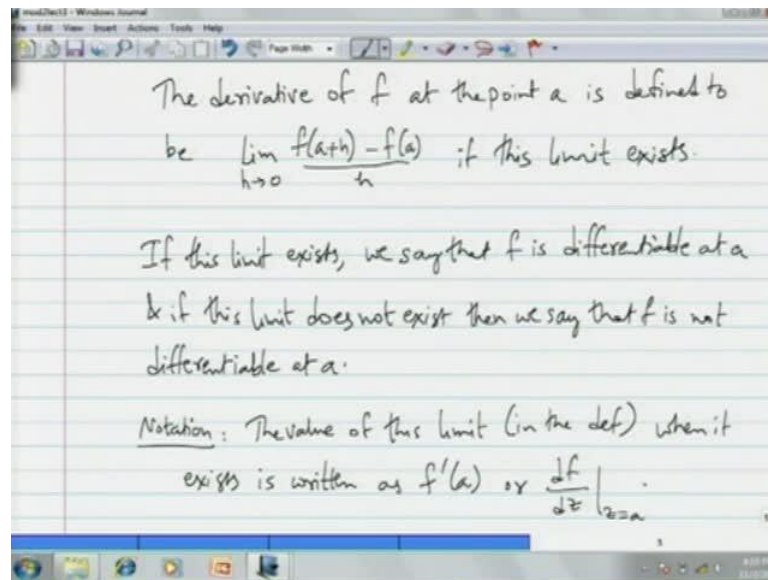 mod2lect3 - Windows Journal
File Edit View Insert Actions Tools Help
Page Width
The derivative of f at the point a is defined to
be lim h→0 f(a+h) - f(a) / h if this limit exists.
If this limit exists, we say that f is differentiable at a
& if this limit does not exist then we say that f is not
differentiable at a.
Notation: The value of this limit (in the def) when it
exists is written as f'(a) or df/dz |z=a.